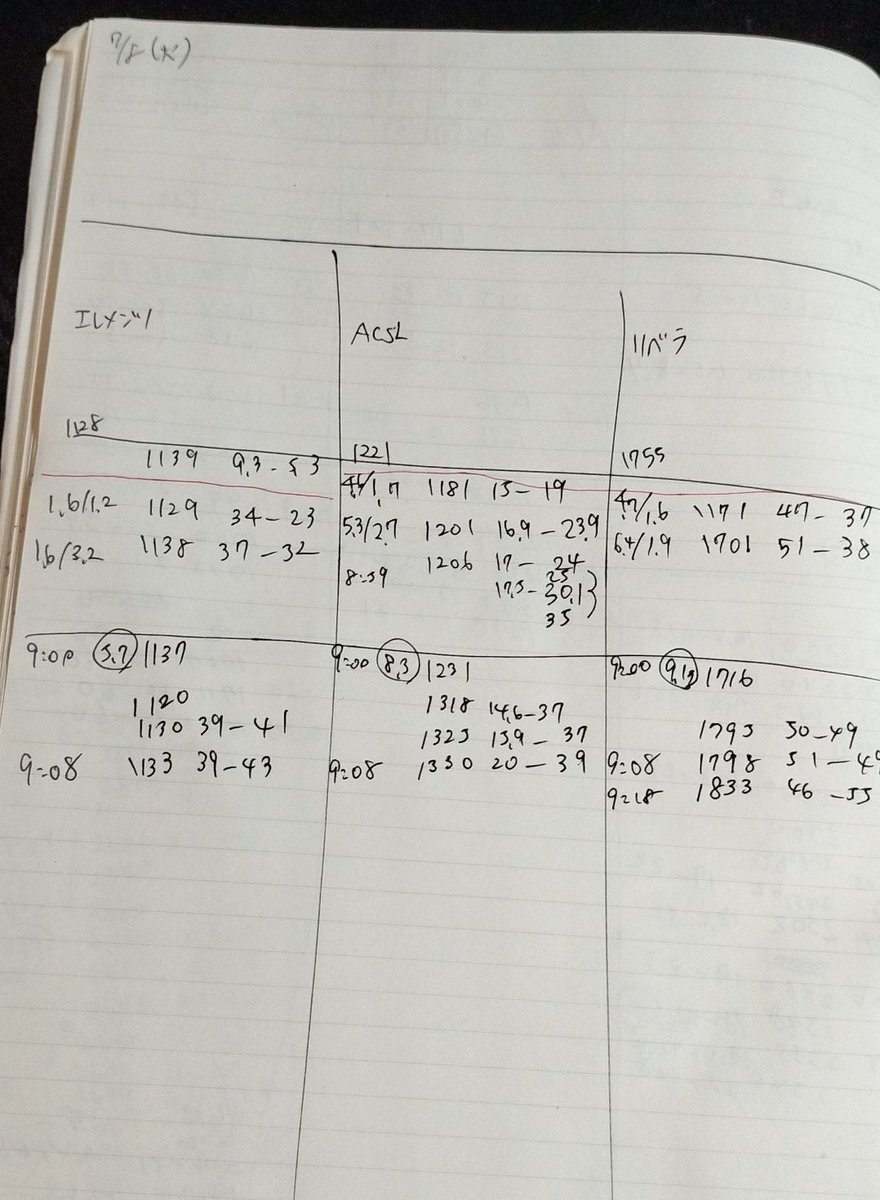 7/8(水)
エレメンツ
1128
1139 9.3-53
1.6/1.2 1129 34-23
1.6/3.2 1138 37-32
9:00 5.7 1137
1120
1130 39-41
9:08 1133 39-43
ACSL
1221
1181 15-19
5.3/2.7 1201 16.9-23.9
1206 17-24
25
8:59 17.5-30.1
35
9:00 8.3 1231
1318 14.6-37
1325 15.9-37
9:08 1330 20-39
リベラ
1755
4.7/1.6 1171 47-37
6.4/1.9 1701 51-38
9:00 1716
1795 50-49
9:08 1798 51-49
9:18 1833 46-55